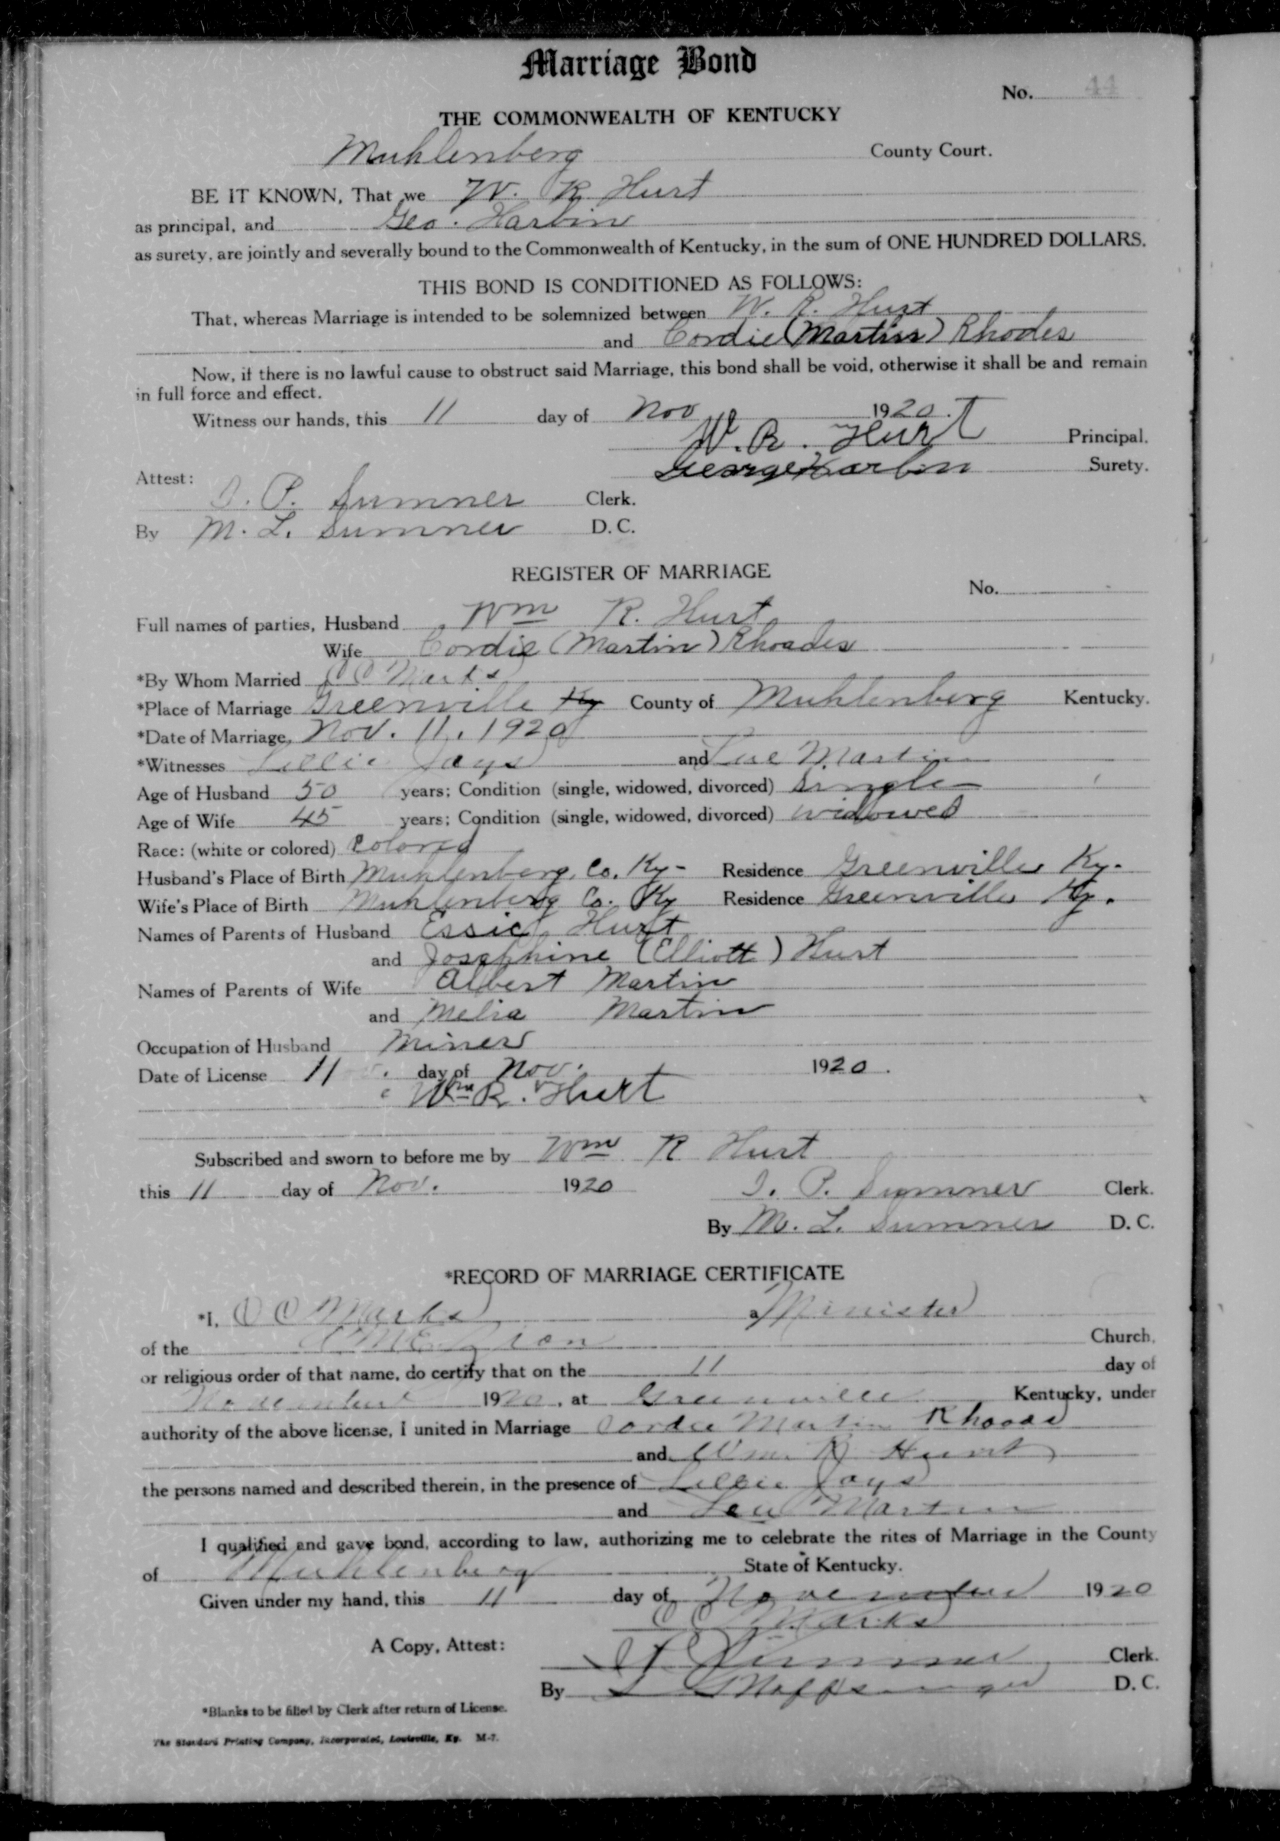 Marriage Bond
No. 44
THE COMMONWEALTH OF KENTUCKY
Muhlenberg County Court.
BE IT KNOWN, That we W. R Hurt
as principal, and Geo. Harbin
as surety, are jointly and severally bound to the Commonwealth of Kentucky, in the sum of ONE HUNDRED DOLLARS.
THIS BOND IS CONDITIONED AS FOLLOWS:
That, whereas Marriage is intended to be solemnized between W. R. Hurt
and Cordie (Martin) Rhodes
Now, if there is no lawful cause to obstruct said Marriage, this bond shall be void, otherwise it shall be and remain
in full force and effect.
Witness our hands, this 11 day of Nov 1920.
W. R. Hurt Principal.
George Harbin Surety.
Attest:
J. P. Sumner Clerk.
By M. L. Sumner D. C.
REGISTER OF MARRIAGE
No.
Full names of parties, Husband Wm R. Hurt
Wife Cordie (Martin) Rhoades
*By Whom Married O O Marks
*Place of Marriage Greenville Ky County of Muhlenberg Kentucky.
*Date of Marriage, Nov. 11, 1920
*Witnesses Lillie Jays and Martin
Age of Husband 50 years; Condition (single, widowed, divorced) Single
Age of Wife 45 years; Condition (single, widowed, divorced) widowed
Race: (white or colored) Colored
Husband's Place of Birth Muhlenberg, Co. Ky- Residence Greenville Ky.
Wife's Place of Birth Muhlenberg Co. Ky Residence Greenville Ky.
Names of Parents of Husband Essie Hurt
and Josephine (Elliott) Hurt
Names of Parents of Wife Albert Martin
and Melia Martin
Occupation of Husband Miner
Date of License 11 day of Nov. 1920.
Wm R. Hurt
Subscribed and sworn to before me by Wm R Hurt
this 11 day of Nov. 1920 J. P. Sumner Clerk.
By M. L. Sumner D. C.
*RECORD OF MARRIAGE CERTIFICATE
*I, O O Marks a Minister
of the AME Zion Church,
or religious order of that name, do certify that on the 11 day of
November 1920, at Greenville Kentucky, under
authority of the above license, I united in Marriage Cordie Martin Rhoads
and Wm. R Hurt
the persons named and described therein, in the presence of Lillie Jays
and Martin
I qualified and gave bond, according to law, authorizing me to celebrate the rites of Marriage in the County
of Muhlenberg State of Kentucky.
Given under my hand, this 11 day of November 1920
O O Marks
A Copy, Attest:
Sumner Clerk.
By D. C.
*Blanks to be filled by Clerk after return of License.
The Standard Printing Company, Incorporated, Louisville, Ky. M-7.